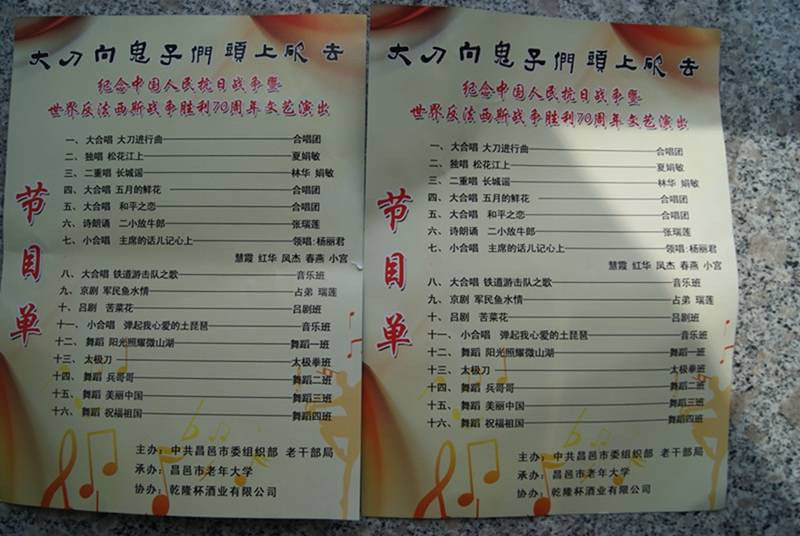 大刀向鬼子們頭上砍去
纪念中国人民抗日战争暨
世界反法西斯战争胜利70周年文艺演出
节目单
一、大合唱 大刀进行曲——合唱团
二、独唱 松花江上——夏娟敏
三、二重唱 长城谣——林华 娟敏
四、大合唱 五月的鲜花——合唱团
五、大合唱 和平之恋——合唱团
六、诗朗诵 二小放牛郎——张瑞莲
七、小合唱 主席的话儿记心上——领唱:杨丽君
慧霞 红华 凤杰 春燕 小宫
八、大合唱 铁道游击队之歌——音乐班
九、京剧 军民鱼水情——占弟 瑞莲
十、吕剧 苦菜花——吕剧班
十一、小合唱 弹起我心爱的土琵琶——音乐班
十二、舞蹈 阳光照耀微山湖——舞蹈一班
十三、太极刀——太极拳班
十四、舞蹈 兵哥哥——舞蹈二班
十五、舞蹈 美丽中国——舞蹈三班
十六、舞蹈 祝福祖国——舞蹈四班
主办：中共昌邑市委组织部 老干部局
承办：昌邑市老年大学
协办：乾隆杯酒业有限公司
大刀向鬼子們頭上砍去
纪念中国人民抗日战争暨
世界反法西斯战争胜利70周年文艺演出
节目单
一、大合唱 大刀进行曲——合唱团
二、独唱 松花江上——夏娟敏
三、二重唱 长城谣——林华 娟敏
四、大合唱 五月的鲜花——合唱团
五、大合唱 和平之恋——合唱团
六、诗朗诵 二小放牛郎——张瑞莲
七、小合唱 主席的话儿记心上——领唱:杨丽君
慧霞 红华 凤杰 春燕 小宫
八、大合唱 铁道游击队之歌——音乐班
九、京剧 军民鱼水情——占弟 瑞莲
十、吕剧 苦菜花——吕剧班
十一、小合唱 弹起我心爱的土琵琶——音乐班
十二、舞蹈 阳光照耀微山湖——舞蹈一班
十三、太极刀——太极拳班
十四、舞蹈 兵哥哥——舞蹈二班
十五、舞蹈 美丽中国——舞蹈三班
十六、舞蹈 祝福祖国——舞蹈四班
主办：中共昌邑市委组织部 老干部局
承办：昌邑市老年大学
协办：乾隆杯酒业有限公司